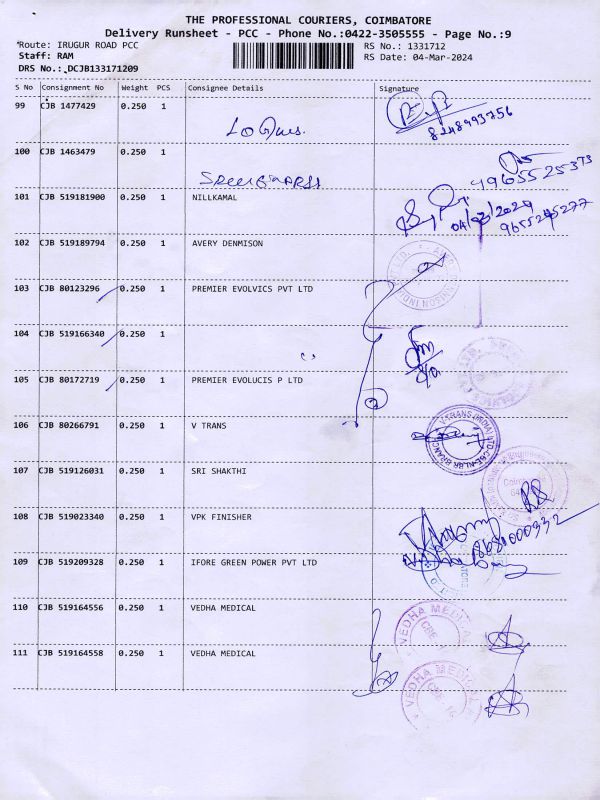 THE PROFESSIONAL COURIERS, COIMBATORE
Delivery Runsheet - PCC - Phone No.:0422-3505555 - Page No.:9
Route: IRUGUR ROAD PCC RS No.: 1331712
Staff: RAM RS Date: 04-Mar-2024
DRS No.: DCJB133171209
S No Consignment No Weight PCS Consignee Details Signature
99 CJB 1477429 0.250 1
8248993756
100 CJB 1463479 0.250 1
101 CJB 519181900 0.250 1 NILLKAMAL
04/03/2024
9655245277
102 CJB 519189794 0.250 1 AVERY DENMISON
103 CJB 80123296 0.250 1 PREMIER EVOLVICS PVT LTD
104 CJB 519166340 0.250 1
105 CJB 80172719 0.250 1 PREMIER EVOLUCIS P LTD
106 CJB 80266791 0.250 1 V TRANS
V-TRANS (INDIA) LTD. CBE-NL-BR BRANCH
107 CJB 519126031 0.250 1 SRI SHAKTHI
108 CJB 519023340 0.250 1 VPK FINISHER
109 CJB 519209328 0.250 1 IFORE GREEN POWER PVT LTD
110 CJB 519164556 0.250 1 VEDHA MEDICAL
VEDHA MEDICAL
111 CJB 519164558 0.250 1 VEDHA MEDICAL
VEDHA MEDICAL